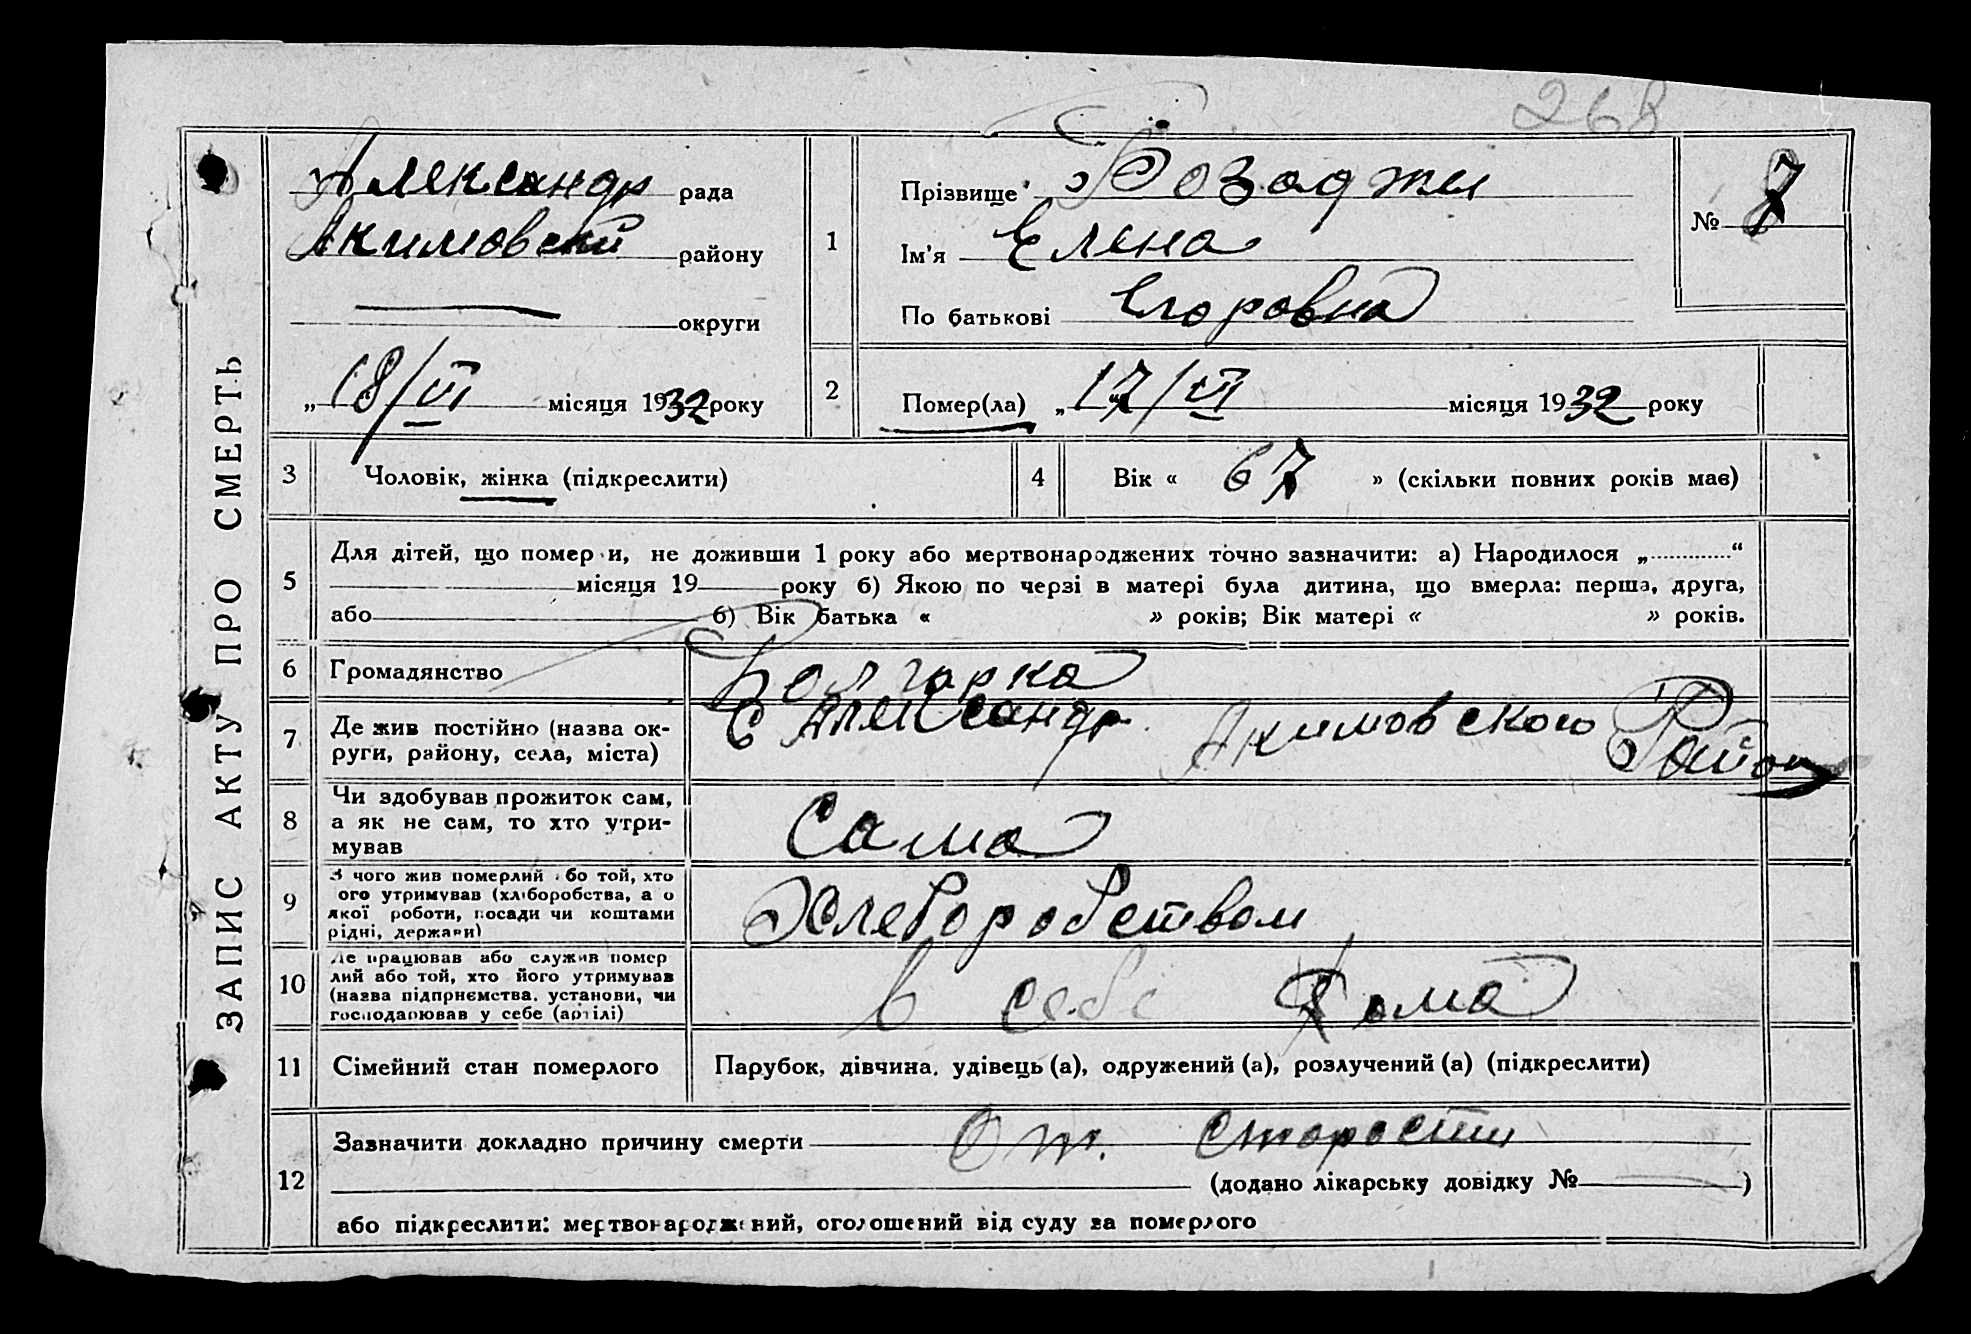 268
ЗАПИС АКТУ ПРО СМЕРТЬ
Александр рада
Акимовский району
округи
„ 18/VI місяця 1932 року
1
Прізвище Бозаджи
Ім'я Елена
По батькові Егоровна
№ 7
2
Помер(ла) „ 17/VI місяця 1932 року
3 Чоловік, жінка (підкреслити)
4 Вік « 67 » (скільки повних років має)
5
Для дітей, що помер и, не доживши 1 року або мертвонароджених точно зазначити: а) Народилося „ “
місяця 19 року б) Якою по черзі в матері була дитина, що вмерла: перша, друга,
або б) Вік батька « » років; Вік матері « » років.
6 Громадянство Болгарка
7
Де жив постійно (назва ок-
руги, району, села, міста)
С Александр. Акимовского Район
8
Чи здобував прожиток сам,
а як не сам, то хто утри-
мував
Сама
9
З чого жив померлий бо той, хто
ого утримував (хліборобства, а о
якої роботи, посади чи коштами
рідні, держави)
Хлеборобством
10
Де працював або служив помер
лий або той, хто його утримував
(назва підприємства, установи, чи
господарював у себе (артілі)
в себе дома
11 Сімейний стан померлого Парубок, дівчина, удівець (а), одружений (а), розлучений (а) (підкреслити)
12
Зазначити докладно причину смерти От. старости
(додано лікарську довідку № )
або підкреслити: мертвонароджений, оголошений від суду за померлого